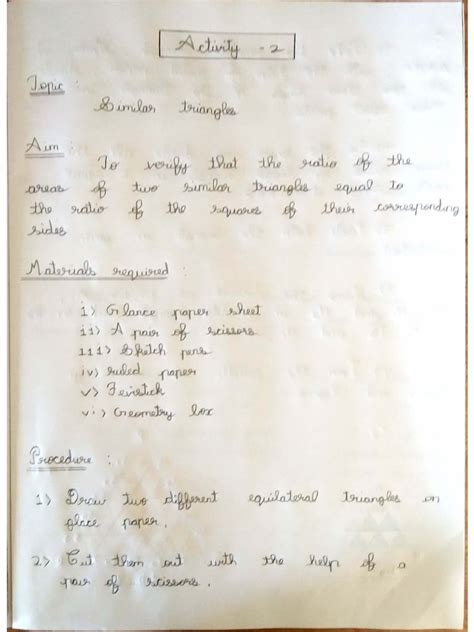 Activity - 2
Topic :
Similar triangles
Aim :
To verify that the ratio of the
areas of two similar triangles equal to
the ratio of the squares of their corresponding
sides
Materials required :
i) Glance paper sheet
ii) A pair of scissors
iii) Sketch pens
iv) ruled paper
v) Fevistick
vi) Geometry box
Procedure :
1) Draw two different equilateral triangles on
glace paper.
2) Cut them out with the help of a
pair of scissors.